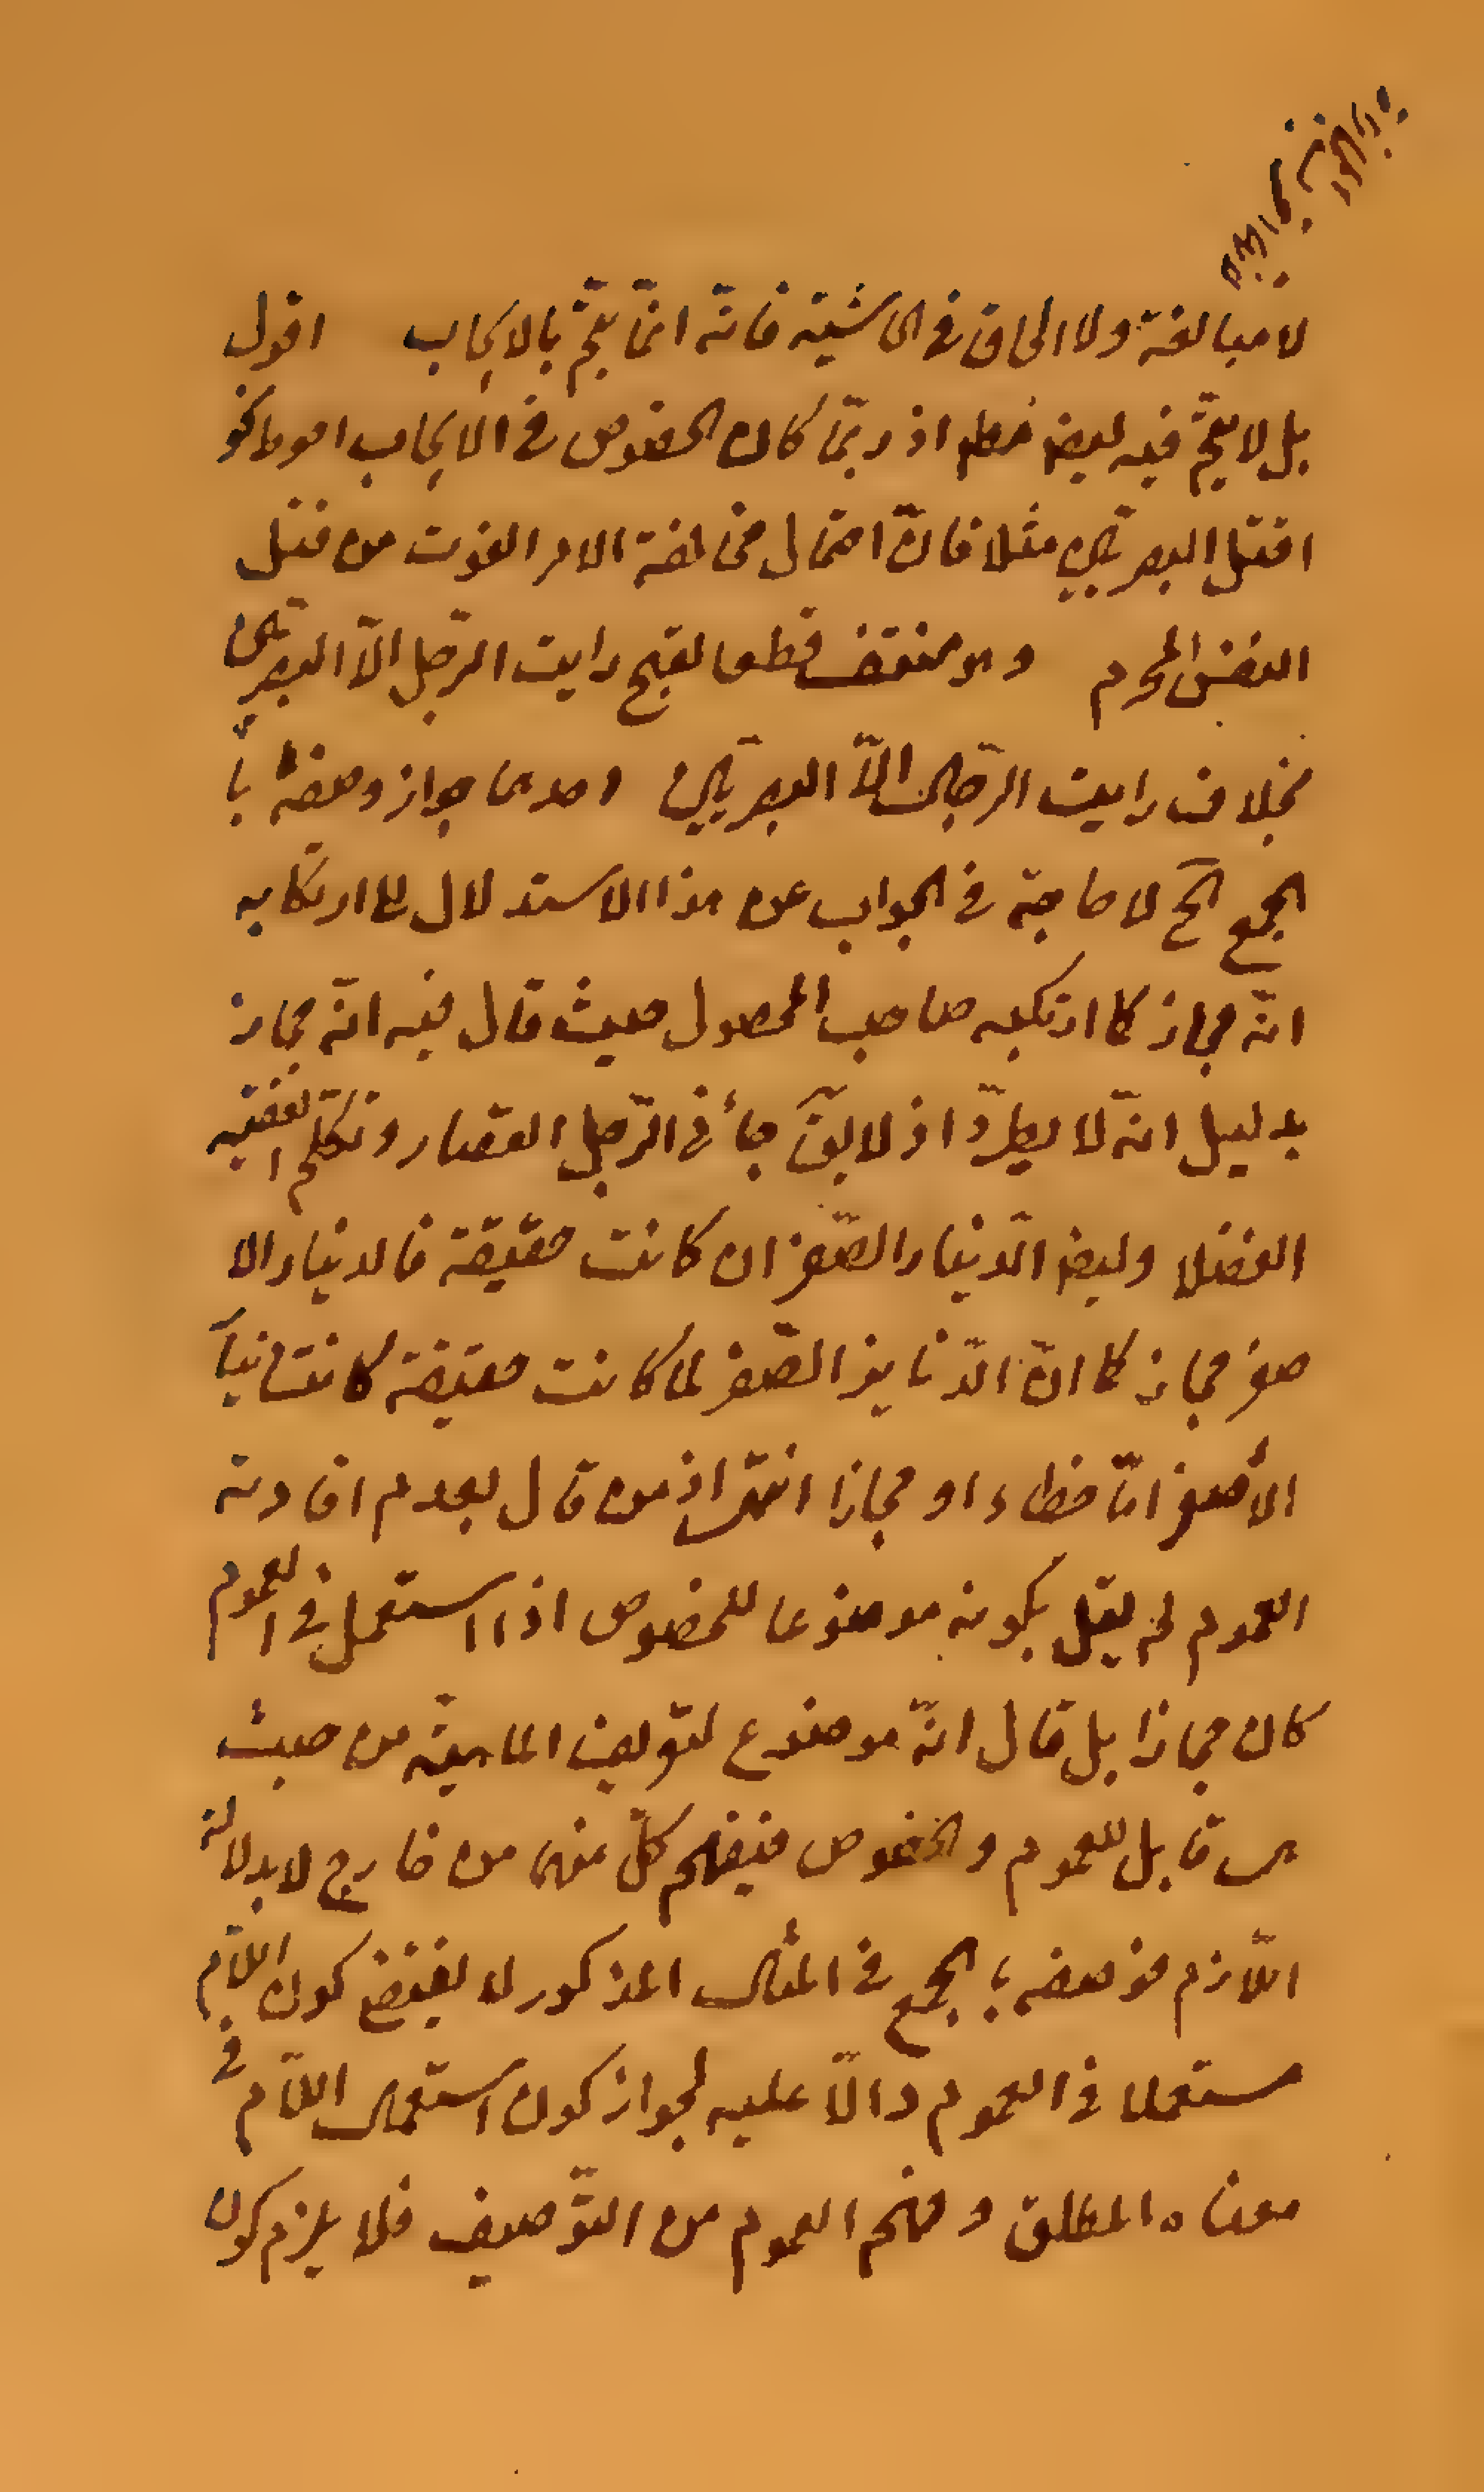 لا مبالغة ولا الحاق في الحاشية فانّه انّما يتمّ بالايجاب اقول
بل لا يتمّ فيه ايضا اذ ربّما كان الخصوص في الايجاب احوط نحو
اقتل البصريّين مثلا فانّ احتمال مخالفة الامر اهون من قتل
النفس المحرم وهو منتف قطعا لقبح رايت الرّجل الّا البصريّين
بخلاف رايت الرّجال الّا البصريّين جواز وصفه با
لجمع الخ لا حاجة في الجواب عن هذا الاستدلال الى ارتكابه
انّه مجاز كما ارتكبه صاحب المحصول حيث قال فيه انّه مجاز
بدليل انّه لا يطرّد اذ لا يقآ جأ في الرّجل القصار وتكلّم الفقيه
الفضلا وايضا الدّينار الصّفر ان كانت حقيقة فالدينار الا
صفر مجاز كما انّ الدّنانير الصّفر لما كانت حقيقة كانت
الأصفر امّا خطاء او مجازا انتهى اذ من قال بعدم افادته
العموم لم يقل بكونه موضوعا للخصوص اذا استعمل في العموم
كان مجازا بل قال انّه موضوع لتعريف الماهيّة من حيث
هى قابل للعموم والخصوص فيفهم كلّ منهما من خارج لا بدلالة
اللّازم فوصفه بالجمع في المثال المذكور لا يقتضى كون اللّام
مستعملا في العموم دالّا عليه لجواز كون استعمال اللّام في
معناه المطلق وفهم العموم من التّوصيف فلا يلزم كون